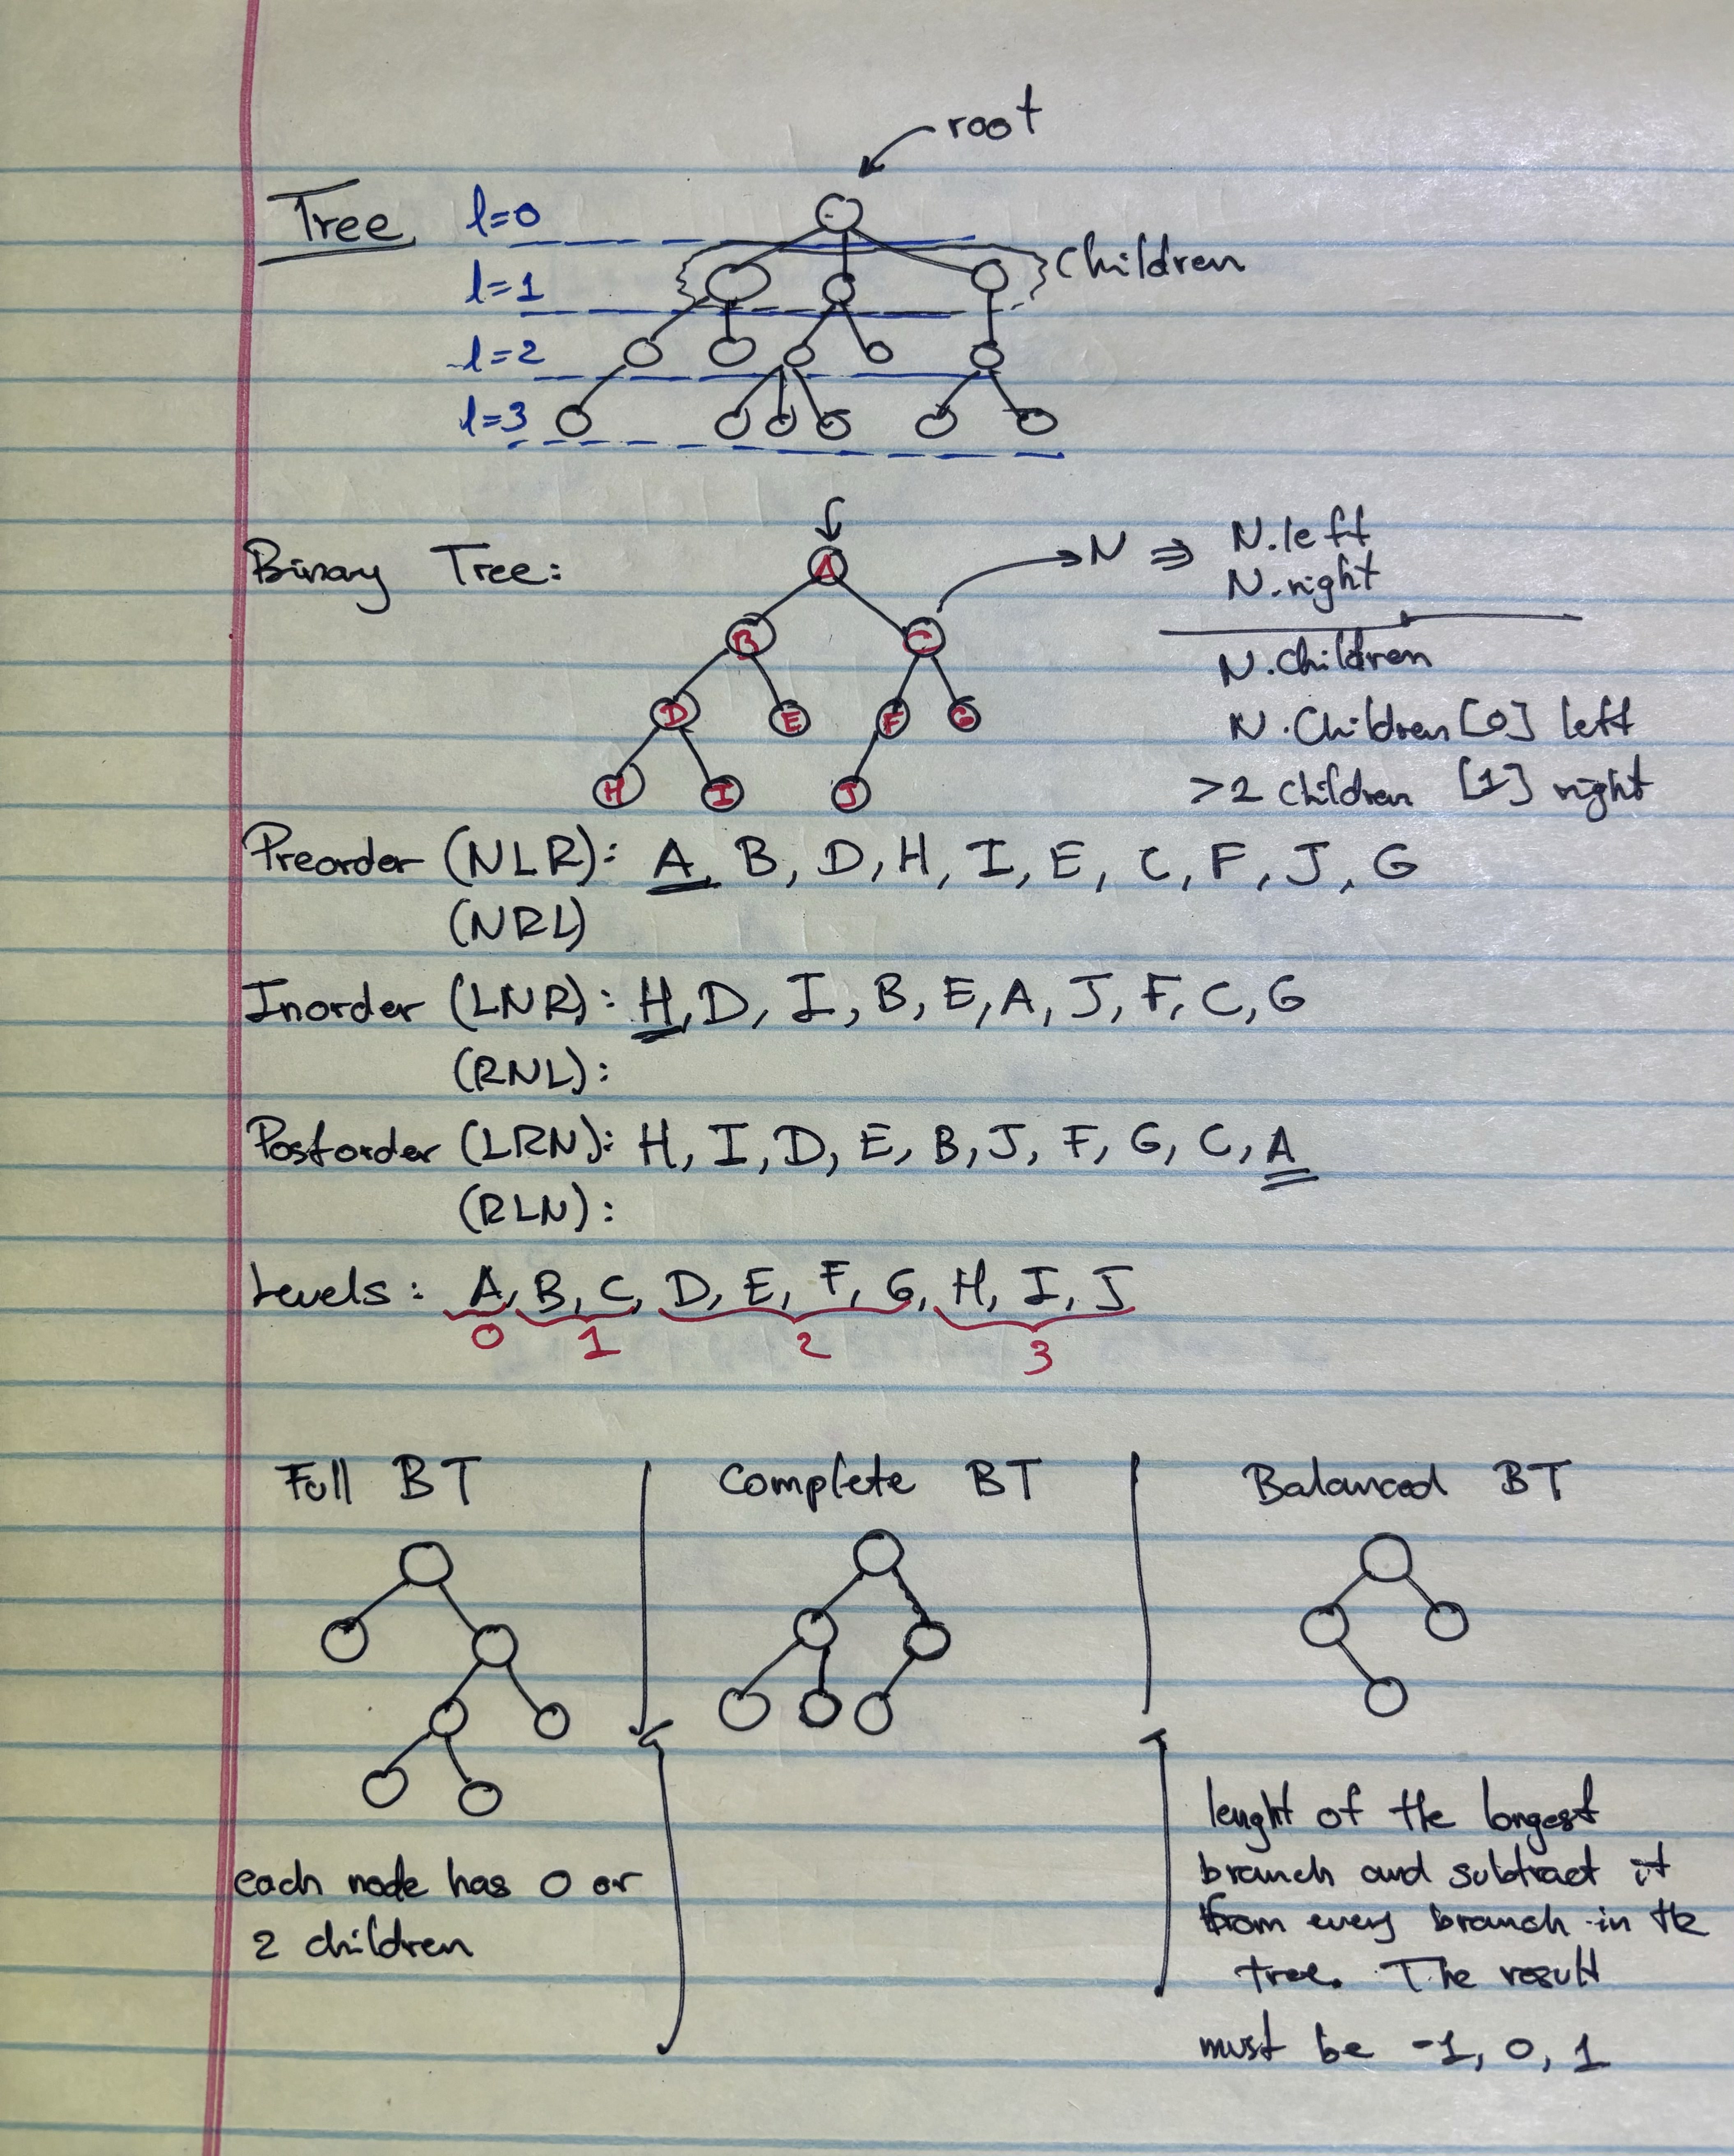 root
Tree l=0
l=1 Children
l=2
l=3
Binary Tree: A N ⇒ N.left
N.right
B C
N.Children
D E F G N.Children [0] left
H I J >2 Children [1] right
Preorder (NLR): A, B, D, H, I, E, C, F, J, G
(NRL)
Inorder (LNR): H, D, I, B, E, A, J, F, C, G
(RNL):
Postorder (LRN): H, I, D, E, B, J, F, G, C, A
(RLN):
Levels: A, B, C, D, E, F, G, H, I, J
0 1 2 3
Full BT Complete BT Balanced BT
each node has 0 or
2 children
lenght of the longest
branch and subtract it
from every branch in the
tree. The result
must be -1, 0, 1